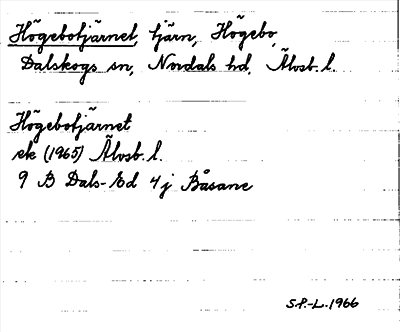 Högebotjärnet, tjärn, Högebo,
Dalskogs sn, Nordals hd, Älvsb. l.
Högebotjärnet
ek (1965) Älvsb. l.
9 B Dals-Ed 4j Båsane
S.P.-L. 1966